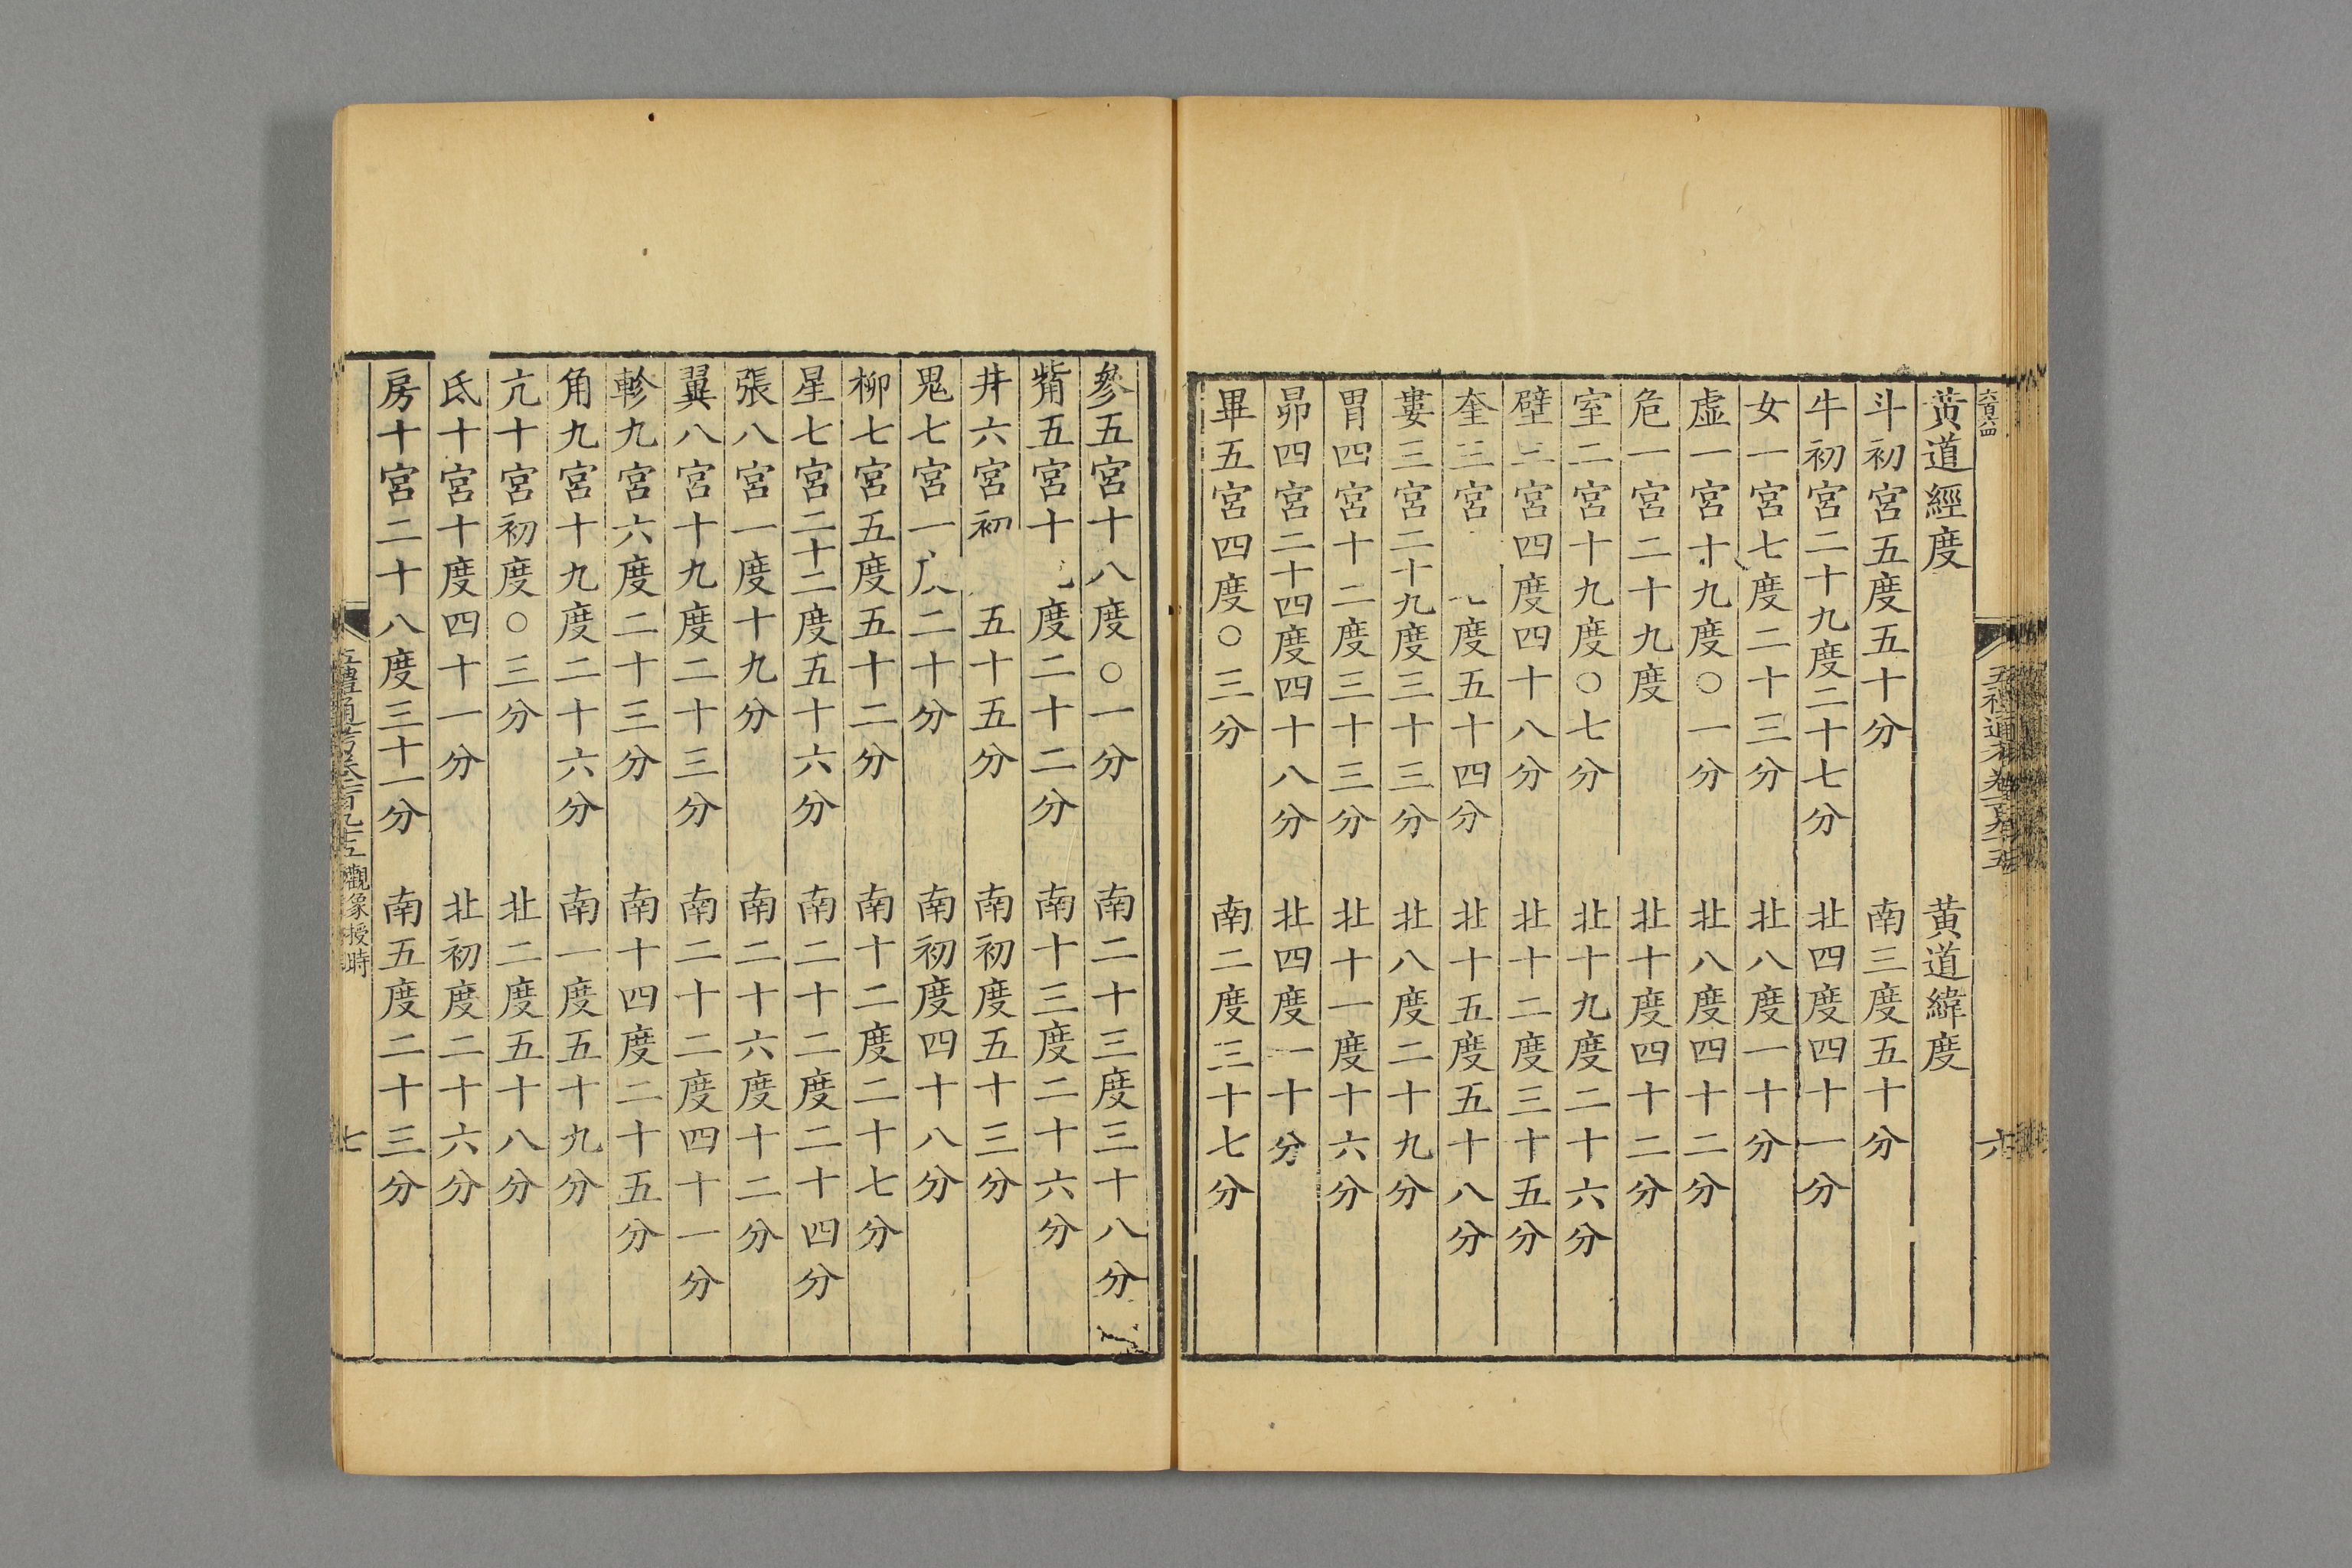 六百六四
黄道經度 黄道緯度
斗初宮五度五十分 南三度五十分
牛初宮二十九度二十七分 北四度四十一分
女一宮七度二十三分 北八度一十分
虛一宮十九度〇一分 北八度四十二分
危一宮二十九度 北十度四十二分
室二宮十九度〇七分 北十九度二十六分
壁三宮四度四十八分 北十二度三十五分
奎三宮 度五十四分 北十五度五十八分
婁三宮二十九度三十三分 北八度二十九分
胃四宮十二度三十三分 北十一度十六分
昴四宮二十四度四十八分 北四度一十分
畢五宮四度〇三分 南二度三十七分
五禮通考卷一百九十五
六
參五宮十八度〇一分 南二十三度三十八分
觜五宮十 度二十二分 南十三度二十六分
井六宮初 五十五分 南初度五十三分
鬼七宮一 二十分 南初度四十八分
柳七宮五度五十二分 南十二度二十七分
星七宮二十二度五十六分 南二十二度二十四分
張八宮一度十九分 南二十六度十二分
翼八宮十九度二十三分 南二十二度四十一分
軫九宮六度二十三分 南十四度二十五分
角九宮十九度二十六分 南一度五十九分
亢十宮初度〇三分 北二度五十八分
氐十宮十度四十一分 北初度二十六分
房十宮二十八度三十一分 南五度二十三分
五禮通考卷一百九十五 觀象授時
七